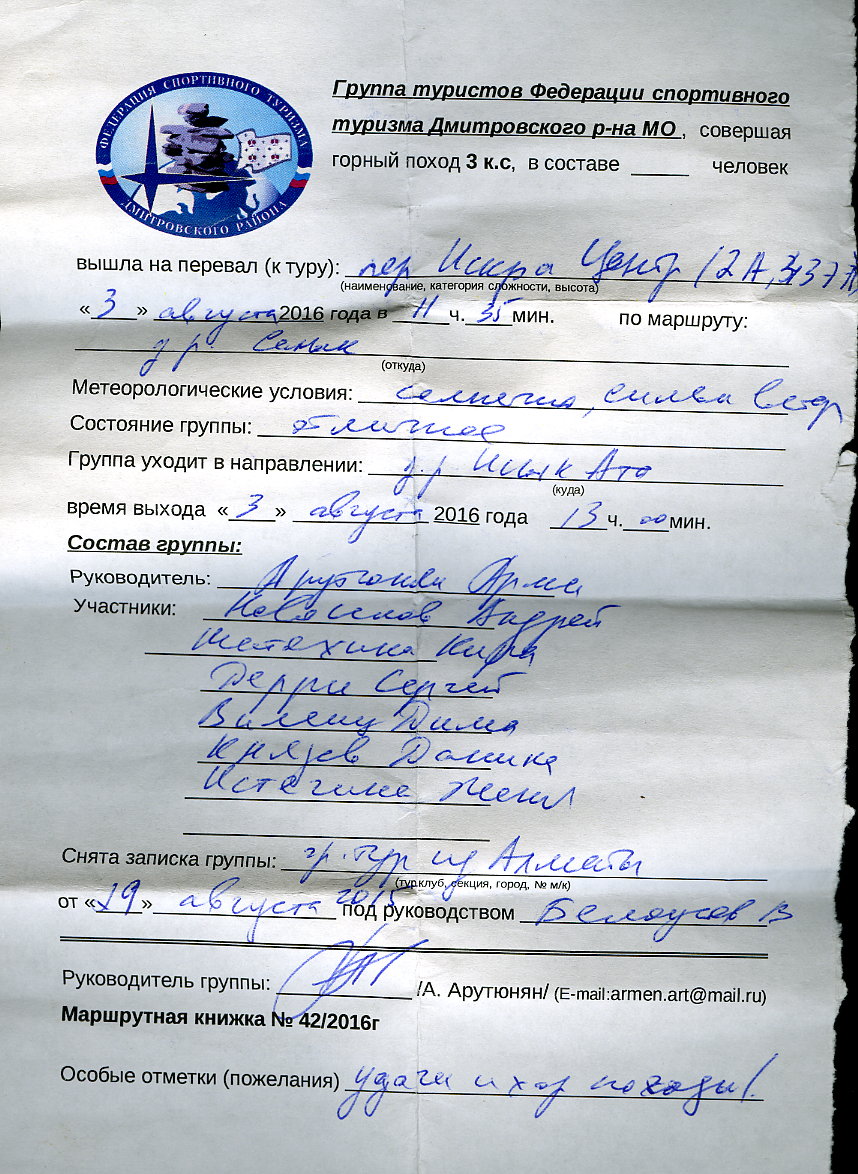 ФЕДЕРАЦИЯ СПОРТИВНОГО ТУРИЗМА
ДМИТРОВСКОГО РАЙОНА
Группа туристов Федерации спортивного
туризма Дмитровского р-на МО , совершая
горный поход 3 к.с, в составе _____ человек
вышла на перевал (к туру): пер Искра Центр (2А,
(наименование, категория сложности, высота)
«3» августа 2016 года в 11 ч. 35 мин. по маршруту:
д.р.
(откуда)
Метеорологические условия: солнечно, сильн ветер
Состояние группы: отличное
Группа уходит в направлении: д.р. Иссык Ата
(куда)
время выхода «3» августа 2016 года 13 ч. 00 мин.
Состав группы:
Руководитель: Арутюнян Армен
Участники: Андрей
Кира
Дерри Сергей
Дима
Князев
Женя
Снята записка группы: гр. тур из Алматы
(тур.клуб, секция, город, № м/к)
от «19» августа 2015 под руководством Белоусов В
Руководитель группы: /А. Арутюнян/ (E-mail:armen.art@mail.ru)
Маршрутная книжка № 42/2016г
Особые отметки (пожелания) удачи и хор погоды!